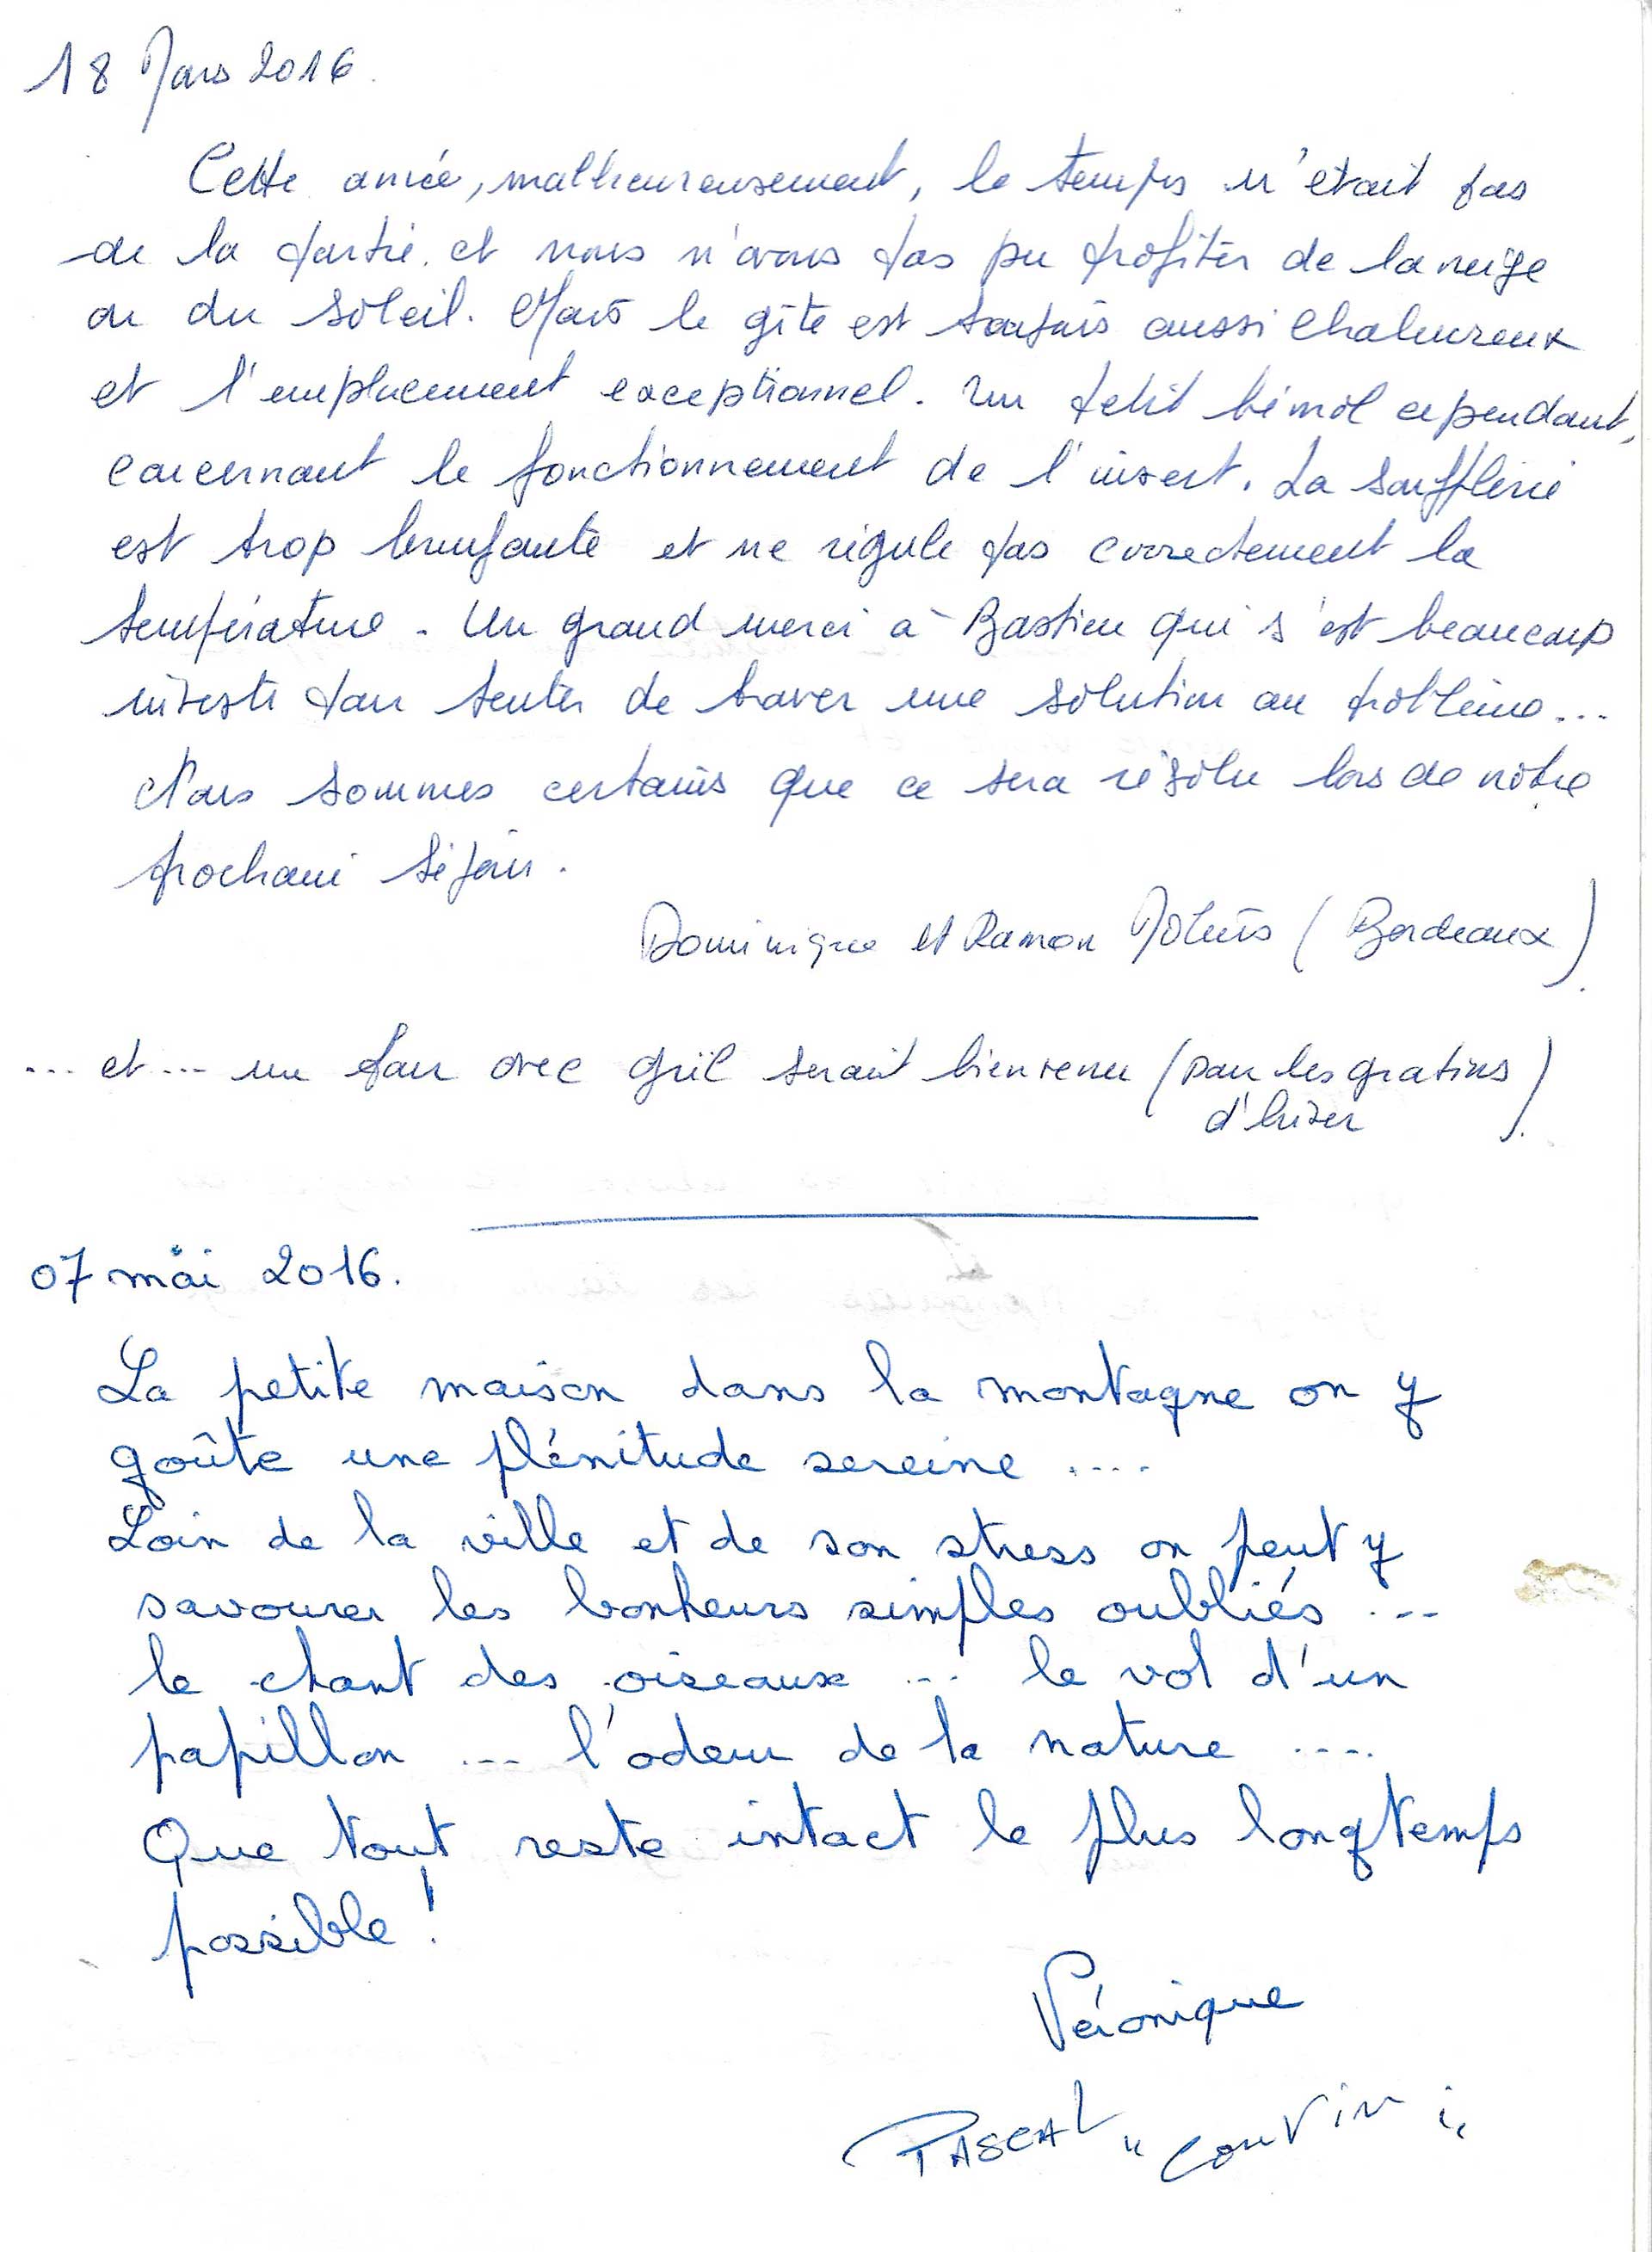 18 Mars 2016.
Cette année, malheureusement, le temps n'était pas
de la partie et nous n'avons pas pu profiter de la neige
ou du soleil. Mais le gîte est toujours aussi chaleureux
et l'emplacement exceptionnel. Un petit bémol cependant,
concernant le fonctionnement de l'insert. La soufflerie
est trop bruyante et ne régule pas correctement la
température. Un grand merci à Bastien qui s'est beaucoup
investi pour tenter de trouver une solution au problème...
Nous sommes certains que ce sera résolu lors de notre
prochain séjour.
Dominique et Ramon (Bordeaux).
... et ... un four avec gril serait bienvenu (pour les gratins
d'hiver).
07 mai 2016.
La petite maison dans la montagne on y
goûte une plénitude sereine ....
Loin de la ville et de son stress on peut y
savourer les bonheurs simples oubliés ...
le chant des oiseaux ... le vol d'un
papillon ... l'odeur de la nature ....
Que tout reste intact le plus longtemps
possible !
Véronique
PASCAL